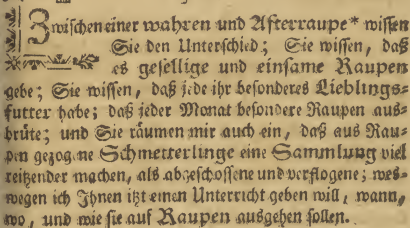 Zwischen einer wahren und Afterraupe* wissen
Sie den Unterschied; Sie wissen, daß
es gesellige und einsame Raupen
gebe; Sie wissen, daß jede ihr besonderes Lieblings-
futter habe; daß jeder Monat besondere Raupen aus-
brüte; und Sie räumen mir auch ein, daß aus Rau-
pen gezogne Schmetterlinge eine Sammlung viel
reitzender machen, als abgeschossene und verflogene; wes-
wegen ich Ihnen itzt einen Unterricht geben will, wann,
wo, und wie sie auf Raupen ausgehen sollen.